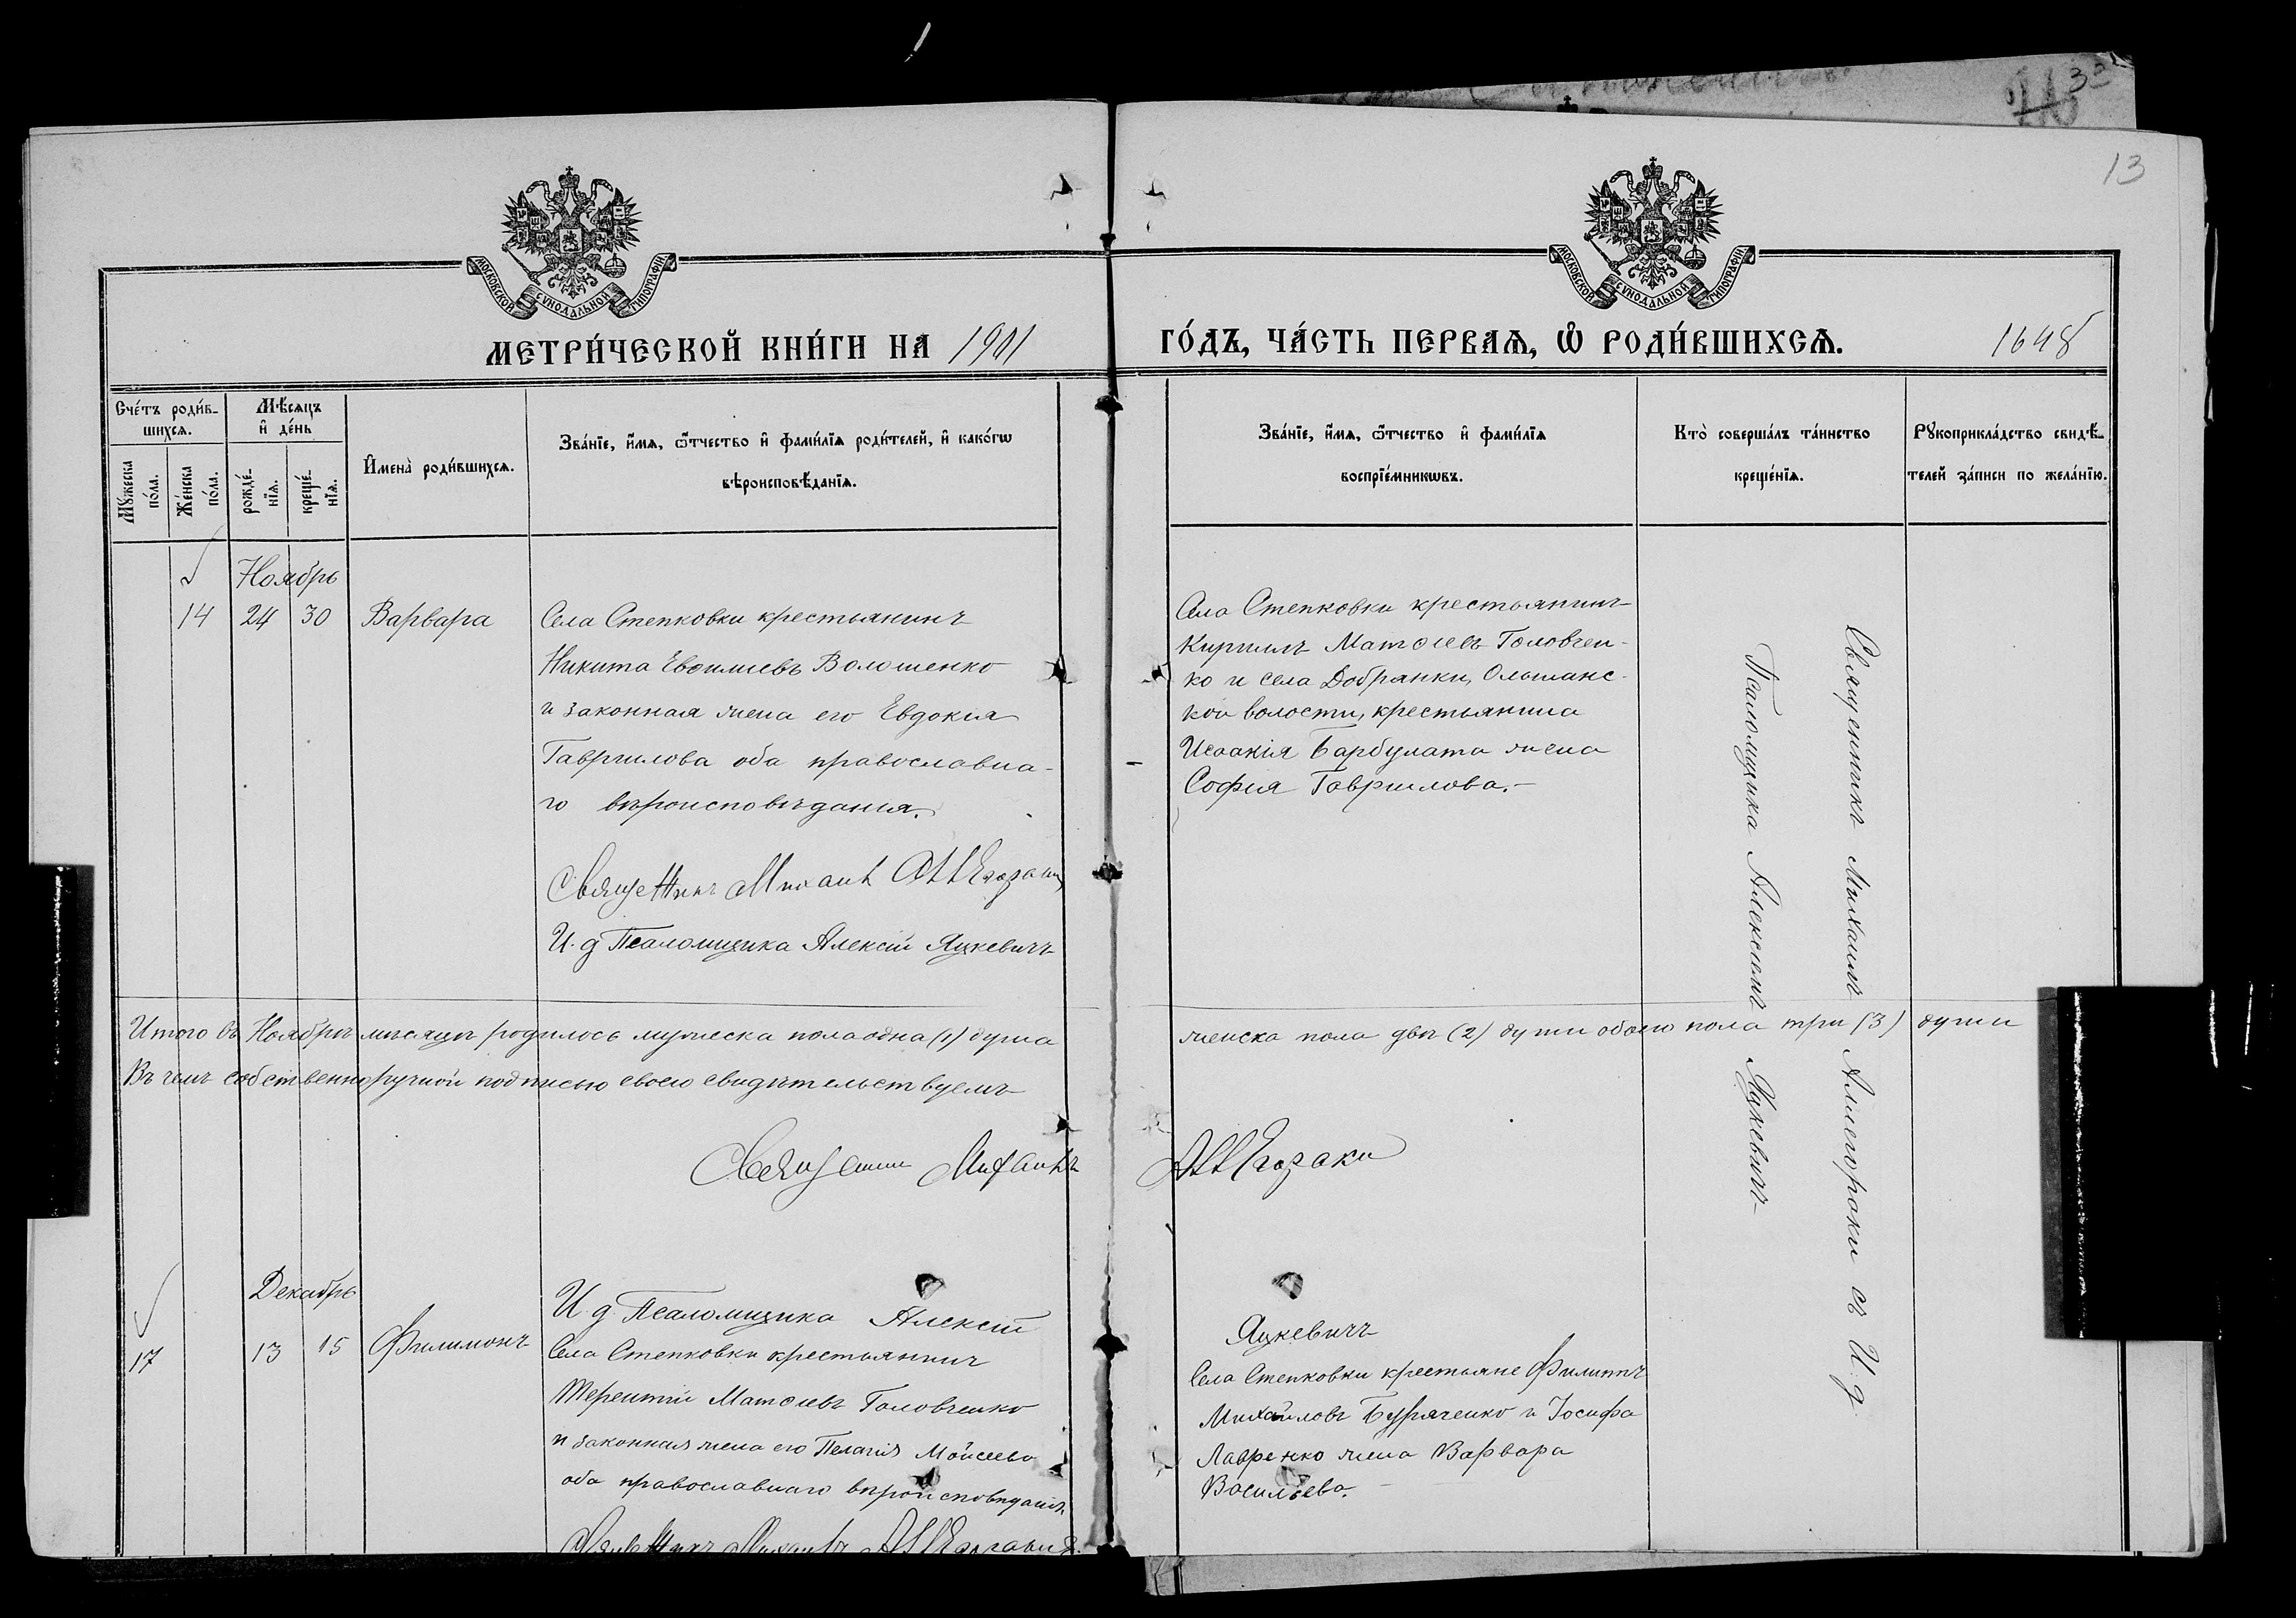 13
МОСКОВСКОЙ СѴНОДАЛЬНОЙ ТИПОГРАФІИ
МОСКОВСКОЙ СѴНОДАЛЬНОЙ ТИПОГРАФІИ
МЕТРИ́ЧЕСКОЙ КНИ́ГИ НА 1901 ГО́ДЪ, ЧА́СТЬ ПЕРВАѦ, Ѡ РОДИ́ВШИХСѦ. 1648
Сче́тъ роди́в-
шихсѧ.
Мꙋ́жеска
по́ла.
Же́нска
по́ла.
Мѣ́сѧцъ
и де́нь
рожде́-
нїѧ.
креще́-
нїѧ.
Имена̀ роди́вшихсѧ.
Зва́нїе, и́мѧ, ѻ́тчество и фами́лїѧ роди́телей, и како́гѡ
вѣроисповѣ́данїѧ.
Зва́нїе, и́мѧ, ѻ́тчество и фами́лїѧ
воспрїе́мникѡвъ.
Кто̀ соверша́лъ та́инство
креще́нїѧ.
Рꙋкоприкла́дство свидѣ́-
телей за́писи по жела́нїю.
Ноябрь
14 24 30 Варвара
Села Степковки крестьянинъ
Никита Евѳимiевъ Волошенко
и законная жена его Евдокія
Гаврилова оба православна-
го вѣроисповѣданія.
Священникъ Михаилъ Аллегораки
И. д Псаломщика Алексій Яцкевичъ
Села Степковки крестьянинъ
Кириллъ Матѳіевъ Головчен-
ко и села Добрянки, Ольшанс-
кой волости, крестьянина
Исаакія Барбулата жена
Софія Гаврилова.-
Священникъ Михаилъ Аллегораки съ И. д
Псаломщика Алексіемъ Яцкевичъ
Итого въ Ноябрѣ мѣсяцѣ родилось мужеска пола одна (1) душа женска пола двѣ (2) души обоего пола три (3) души
Въ чемъ собственноручной подписью своею свидѣтельствуемъ
Священникъ Михаилъ Аллегораки
И. д. Псаломщика Алексій Яцкевичъ
Декабрь
17 13 15 Филимонъ
Села Степковки крестьянинъ
Терентій Матѳіевъ Головченко
и законная жена его Пелагія Моисеева
оба православнаго вѣроисповѣданія.
Священникъ Михаилъ Аллегораки
Села Степковки крестьяне Филиппъ
Михайловъ Буряченко и Іосифа
Лавренко жена Варвара
Васильева.